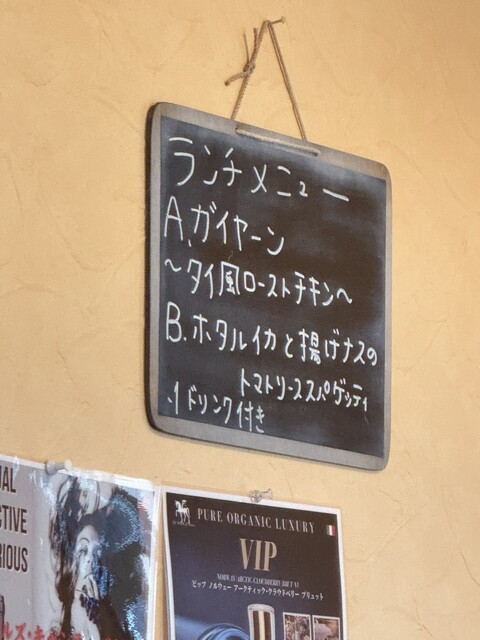 ランチメニュー
A.ガイヤーン
〜タイ風ローストチキン〜
B.ホタルイカと揚げナスの
トマトソーススパゲッティ
・1ドリンク付き
PURE ORGANIC LUXURY
VIP
ビップ ノルウェー アークティック・クラウドベリー ブリュット